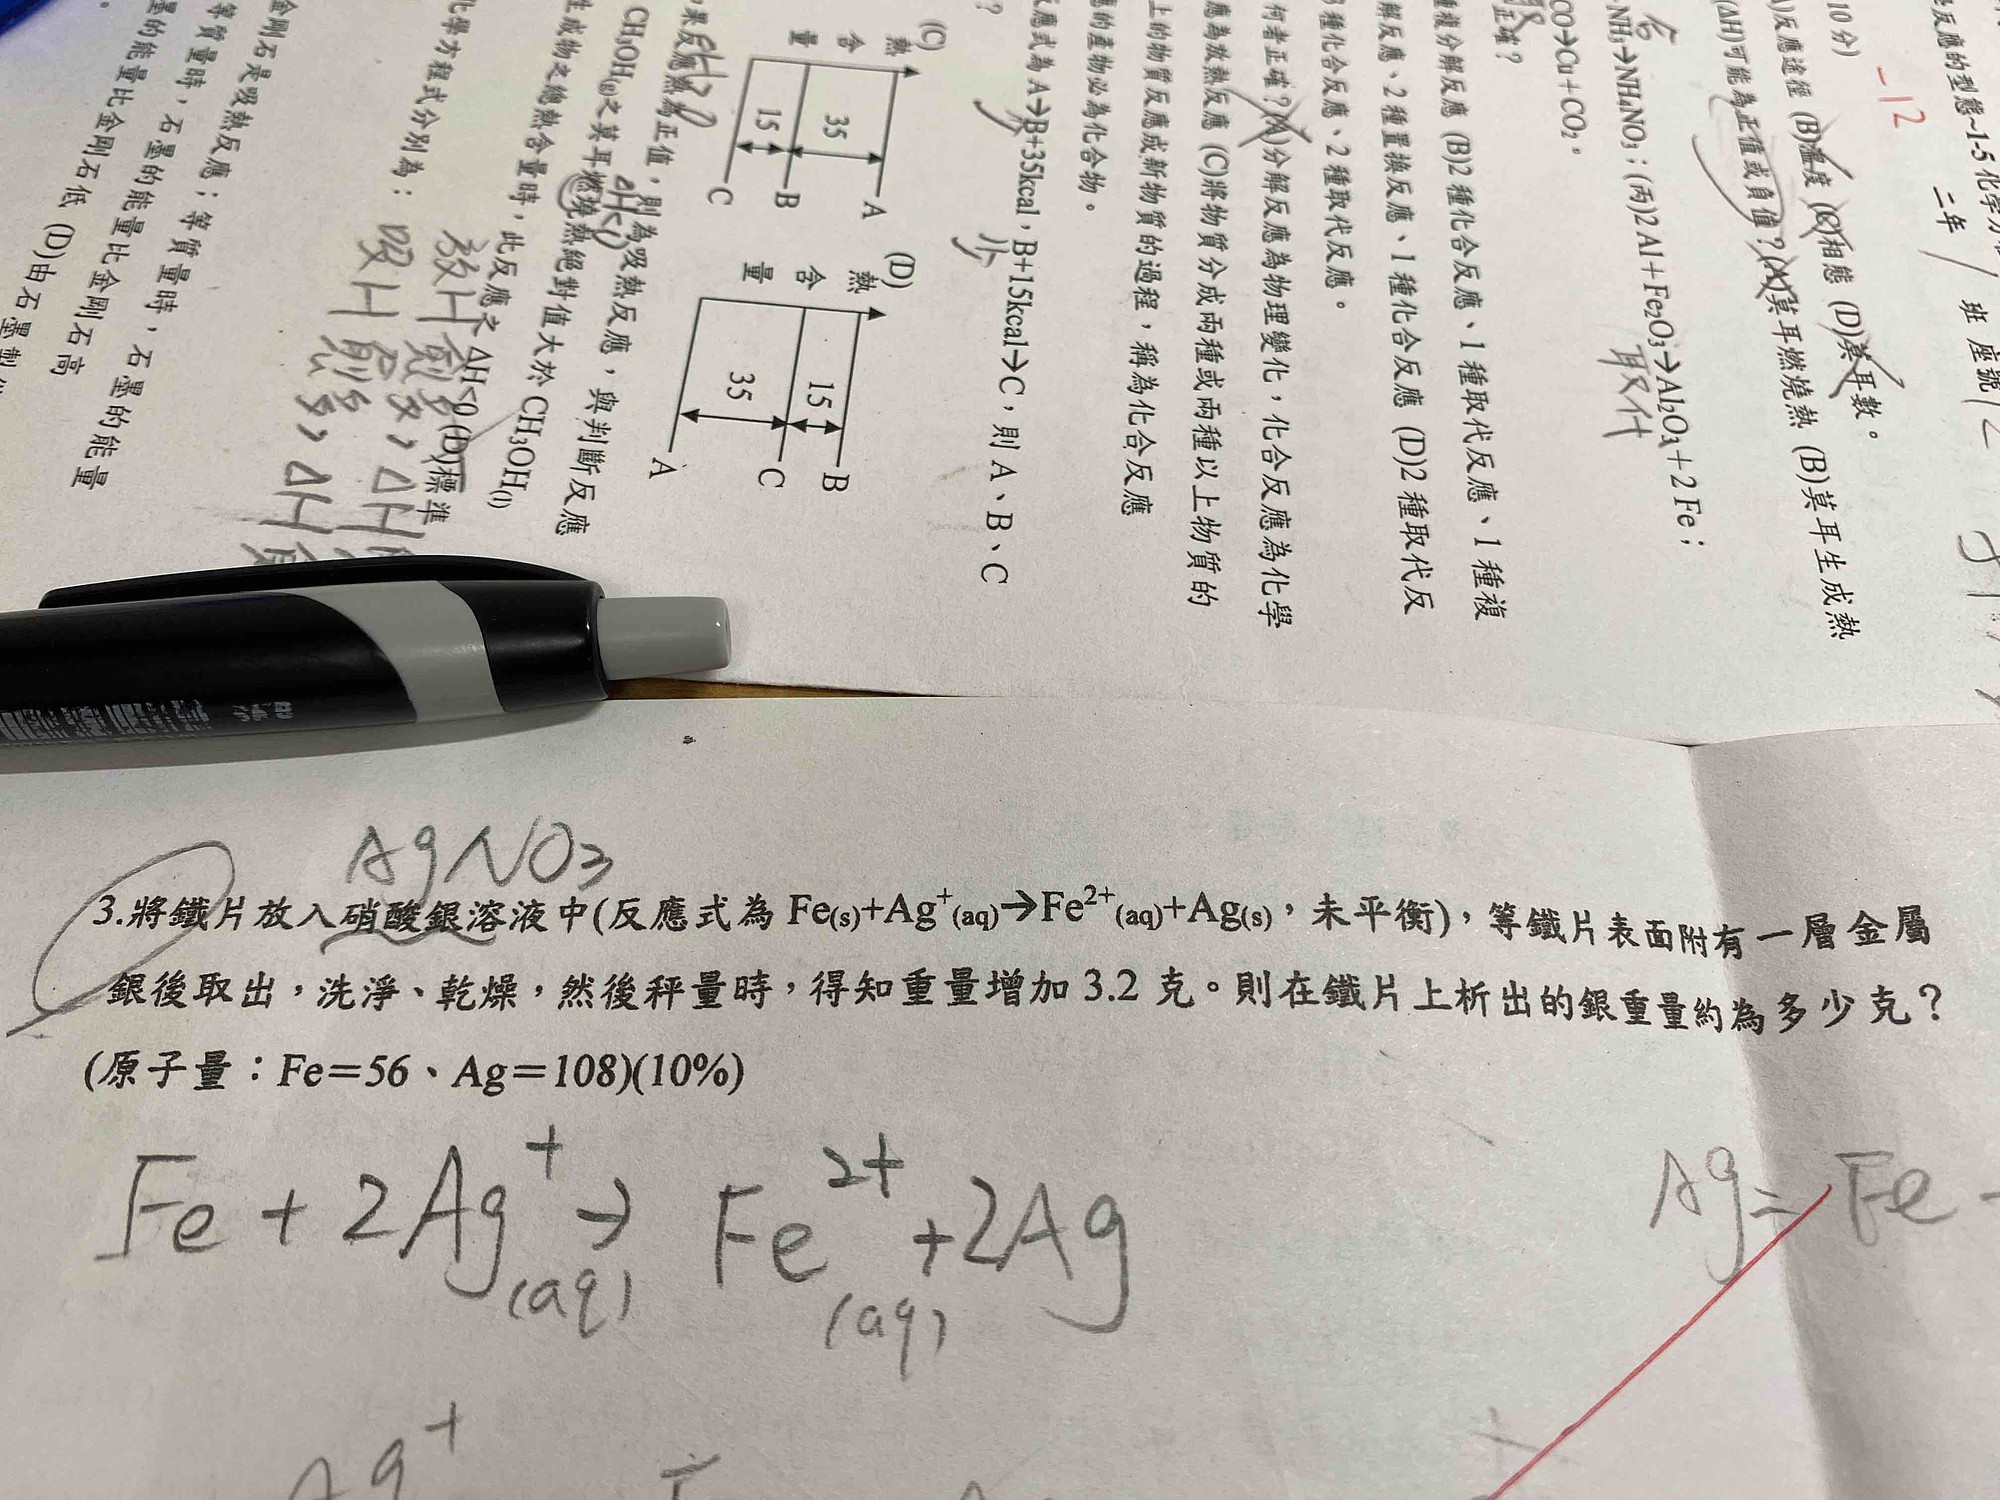 反應的型態~1-5 化學方
二年 / 班 座號 12
-12
10 分)
反應途徑 (B)溫度 (C)相態 (D)莫耳數。
(ΔH)可能為正值或負值?(A)莫耳燃燒熱 (B)莫耳生成熱
NH₃→NH₄NO₃;(丙)2 Al+Fe₂O₃→Al₂O₃+2 Fe;
取代
CO→Cu+CO₂。
正確?
複分解反應 (B)2 種化合反應、1 種取代反應、1 種複
解反應、2 種置換反應、1 種化合反應 (D)2 種取代反
種化合反應、2 種取代反應。
何者正確?(A)分解反應為物理變化,化合反應為化學
應為放熱反應 (C)將物質分成兩種或兩種以上物質的
上的物質反應成新物質的過程,稱為化合反應
的產物必為化合物。
反應式為 A→B+35kcal,B+15kcal→C,則 A、B、C
?
(C)
熱
含
量
35
15
A
B
C
(D)
熱
含
量
15
35
B
C
A
果反應熱為正值,則為吸熱反應,與判斷反應
CH₃OH(g)之莫耳燃燒熱絕對值大於 CH₃OH(l)
生成物之總熱含量時,此反應之 ΔH<0 (D)標準
化學方程式分別為:
金剛石是吸熱反應;等質量時,石墨的能量
等質量時,石墨的能量比金剛石高
墨的能量比金剛石低 (D)由石墨製
AgNO₃
3.將鐵片放入硝酸銀溶液中(反應式為 Fe(s)+Ag⁺(aq)→Fe²⁺(aq)+Ag(s),未平衡),等鐵片表面附有一層金屬
銀後取出,洗淨、乾燥,然後秤量時,得知重量增加 3.2 克。則在鐵片上析出的銀重量約為多少克?
(原子量:Fe=56、Ag=108)(10%)
Fe + 2Ag⁺(aq) → Fe²⁺(aq) + 2Ag
Ag = Fe
Ag⁺